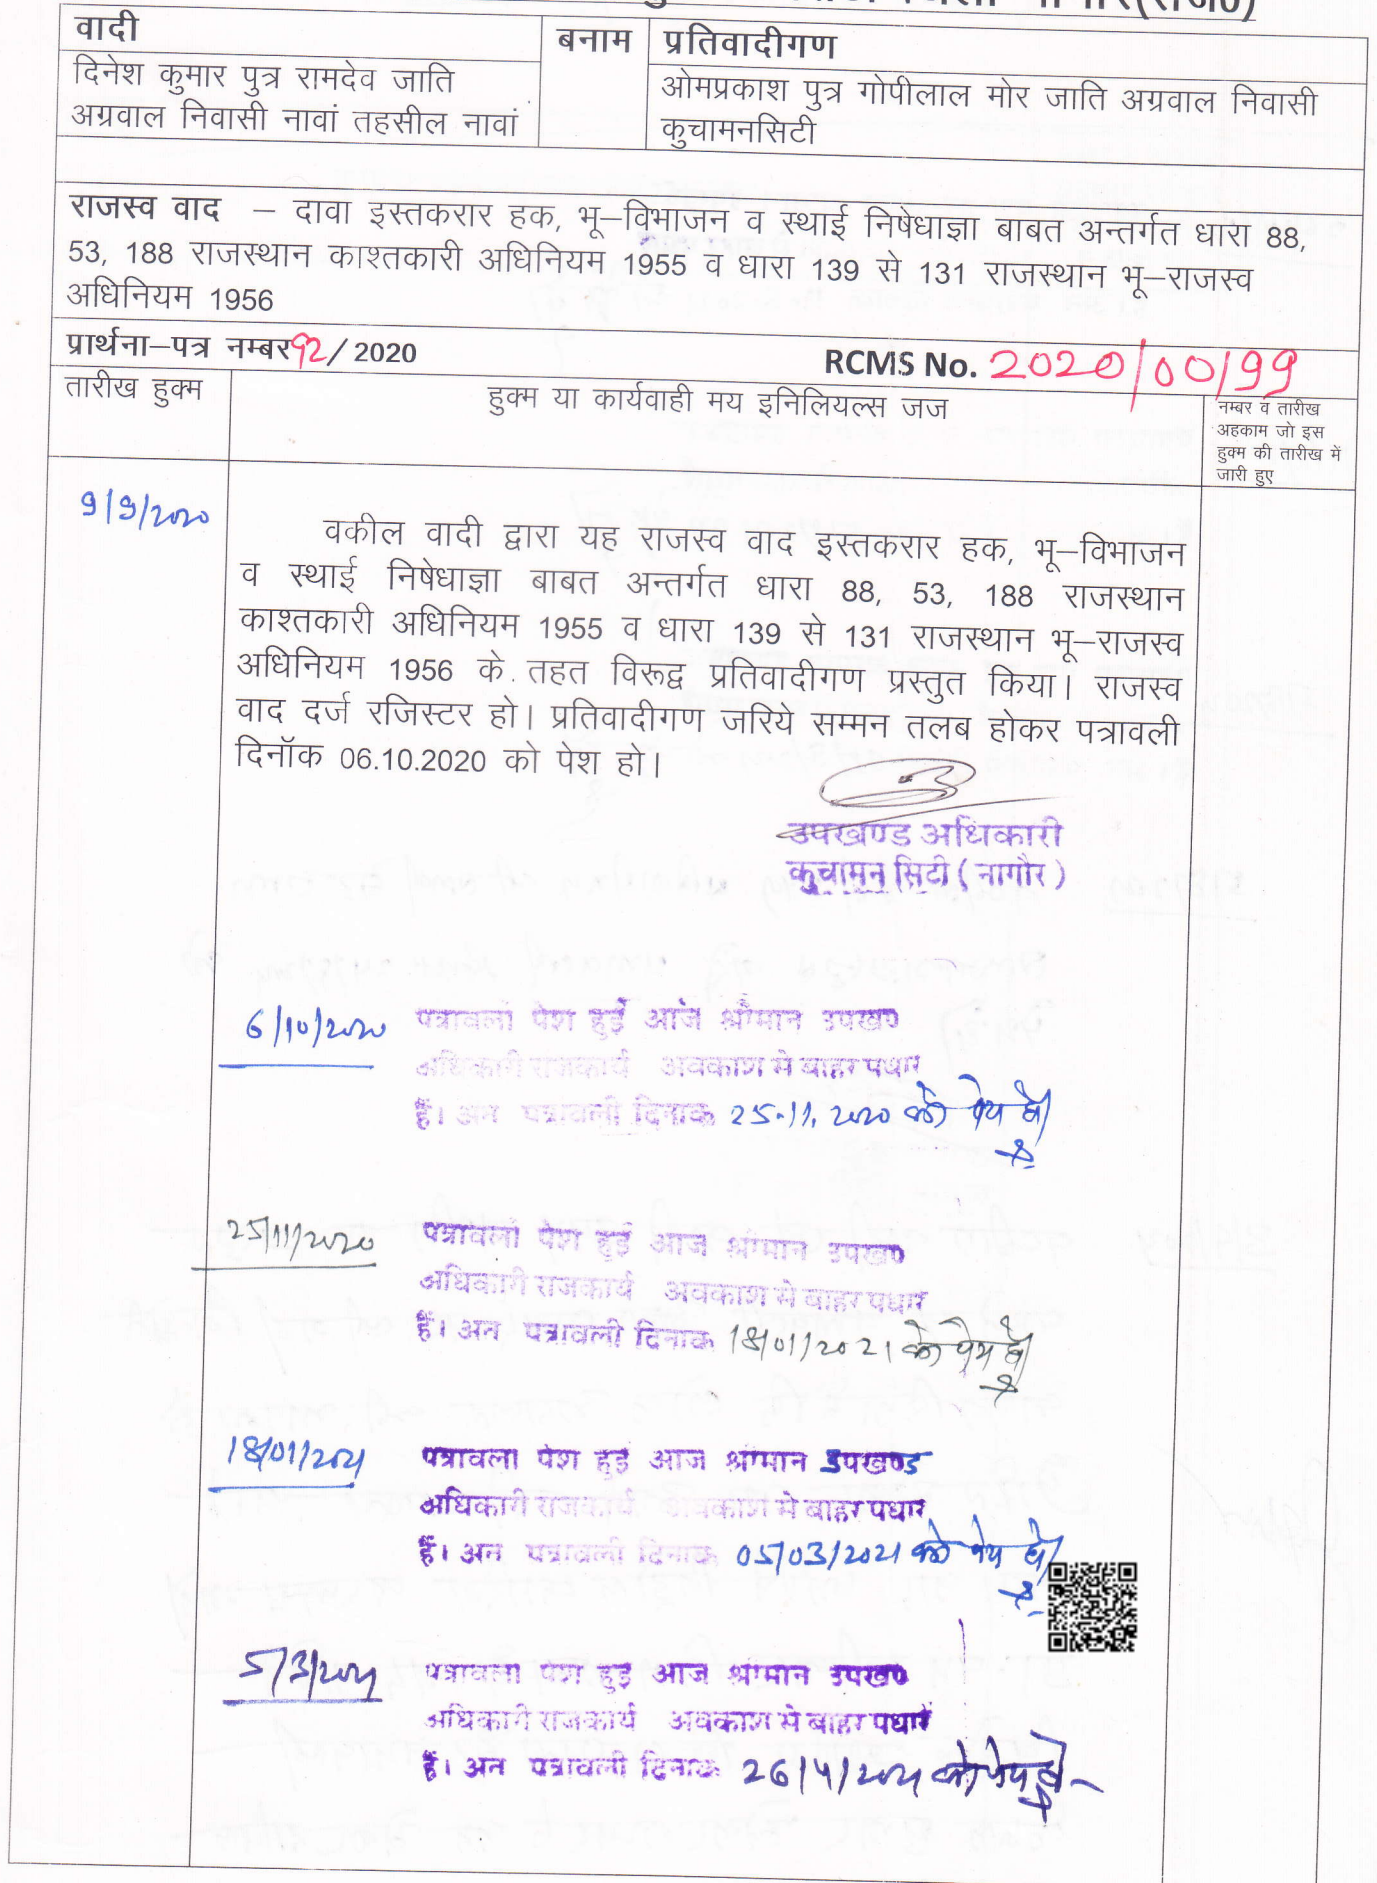 वादी
बनाम
प्रतिवादीगण
दिनेश कुमार पुत्र रामदेव जाति
अग्रवाल निवासी नावां तहसील नावां
ओमप्रकाश पुत्र गोपीलाल मोर जाति अग्रवाल निवासी
कुचामनसिटी
राजस्व वाद – दावा इस्तकरार हक, भू–विभाजन व स्थाई निषेधाज्ञा बाबत अन्तर्गत धारा 88,
53, 188 राजस्थान काश्तकारी अधिनियम 1955 व धारा 139 से 131 राजस्थान भू–राजस्व
अधिनियम 1956
प्रार्थना–पत्र नम्बर 92/2020
RCMS No. 2020/00199
तारीख हुक्म
हुक्म या कार्यवाही मय इनिलियल्स जज
नम्बर व तारीख
अहकाम जो इस
हुक्म की तारीख में
जारी हुए
9/9/2020
वकील वादी द्वारा यह राजस्व वाद इस्तकरार हक, भू–विभाजन
व स्थाई निषेधाज्ञा बाबत अन्तर्गत धारा 88, 53, 188 राजस्थान
काश्तकारी अधिनियम 1955 व धारा 139 से 131 राजस्थान भू–राजस्व
अधिनियम 1956 के तहत विरूद्व प्रतिवादीगण प्रस्तुत किया। राजस्व
वाद दर्ज रजिस्टर हो। प्रतिवादीगण जरिये सम्मन तलब होकर पत्रावली
दिनॉक 06.10.2020 को पेश हो।
उपखण्ड अधिकारी
कुचामन सिटी ( नागौर )
6/10/2020 पत्रावली पेश हुई आज श्रीमान उपखण
अधिकारी राजकार्य अवकाश मे बाहर पधार
हैं। अत पत्रावली दिनाक 25.11.2020 को पेश हो
25/11/2020 पत्रावली पेश हुई आज श्रीमान उपखण
अधिकारी राजकार्य अवकाश मे बाहर पधार
हैं। अत पत्रावली दिनाक 18/01/2021 को पेश हो
18/01/2021 पत्रावली पेश हुई आज श्रीमान उपखण्ड
अधिकारी राजकार्य अवकाश मे बाहर पधार
हैं। अत पत्रावली दिनाक 05/03/2021 को पेश हो
5/3/2021 पत्रावली पेश हुई आज श्रीमान उपखण
अधिकारी राजकार्य अवकाश मे बाहर पधारे
हैं। अत पत्रावली दिनाक 26/4/2021 को पेश हो